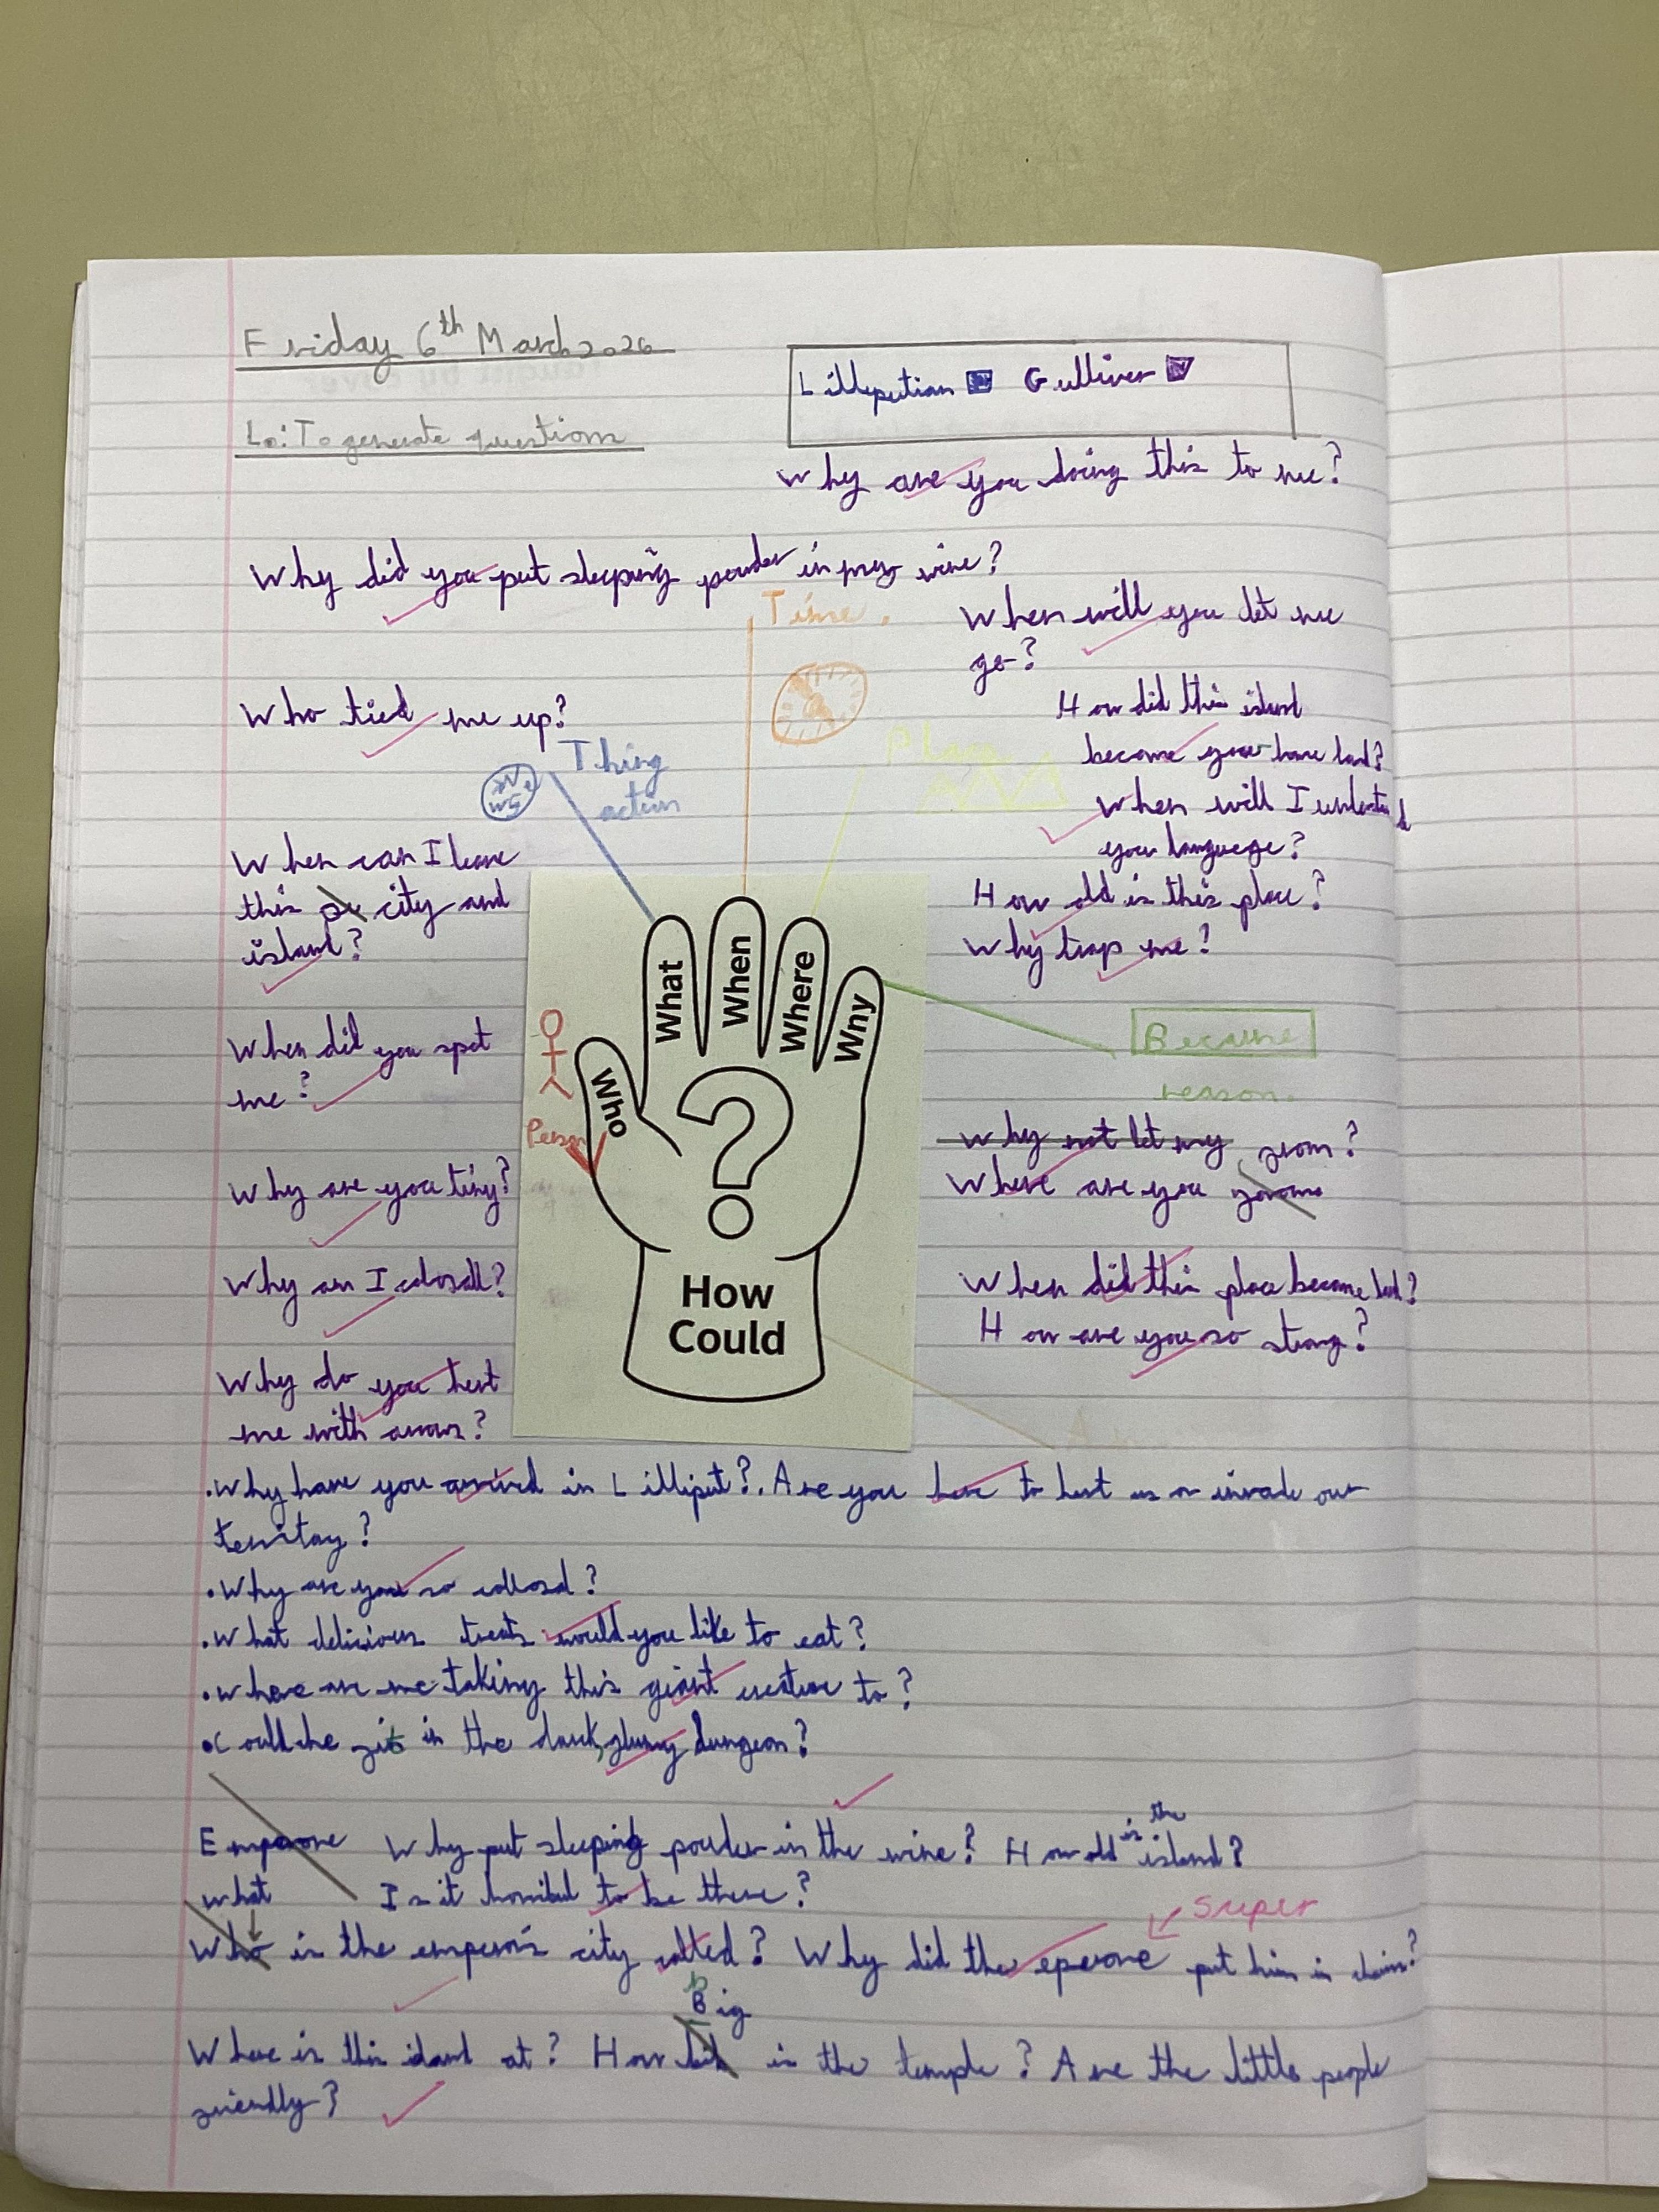 Friday 6th March 2026
Lillepution Gulliver
Lo: To generate questions
Why are you doing this to me?
Why did you put sleeping powder in my wine?
Time.
When will you let me
go?
Who tied me up?
How did this island
become your home land?
When will I understand
your language?
Thing
action
Place
When can I leave
this city and
island?
How old is this place?
Why trap me?
What
When
Where
Why
Who
Person
?
How
Could
Because
reason.
When did you spot
me?
Why not let my
Where are you from?
Why are you tiny?
Why am I colosall?
When did this place become land?
How are you so strong?
Why do you hert
me with arrows?
.Why have you arrived in Lilliput?. Are you here to hurt us or invade our
territory?
.Why are you so collosal?
.What delicious treats would you like to eat?
.Where are we taking this giant creature to?
.Could he fit in the dark, glumy dungeon?
Emperore
Why put sleeping powder in the wine? How old is the island?
what
Is it horribul to be there?
Who is the emperor's city called? Why did the eperore put him in chains?
Super
Big
Where is this island at? How is the temple? Are the little people
friendly?